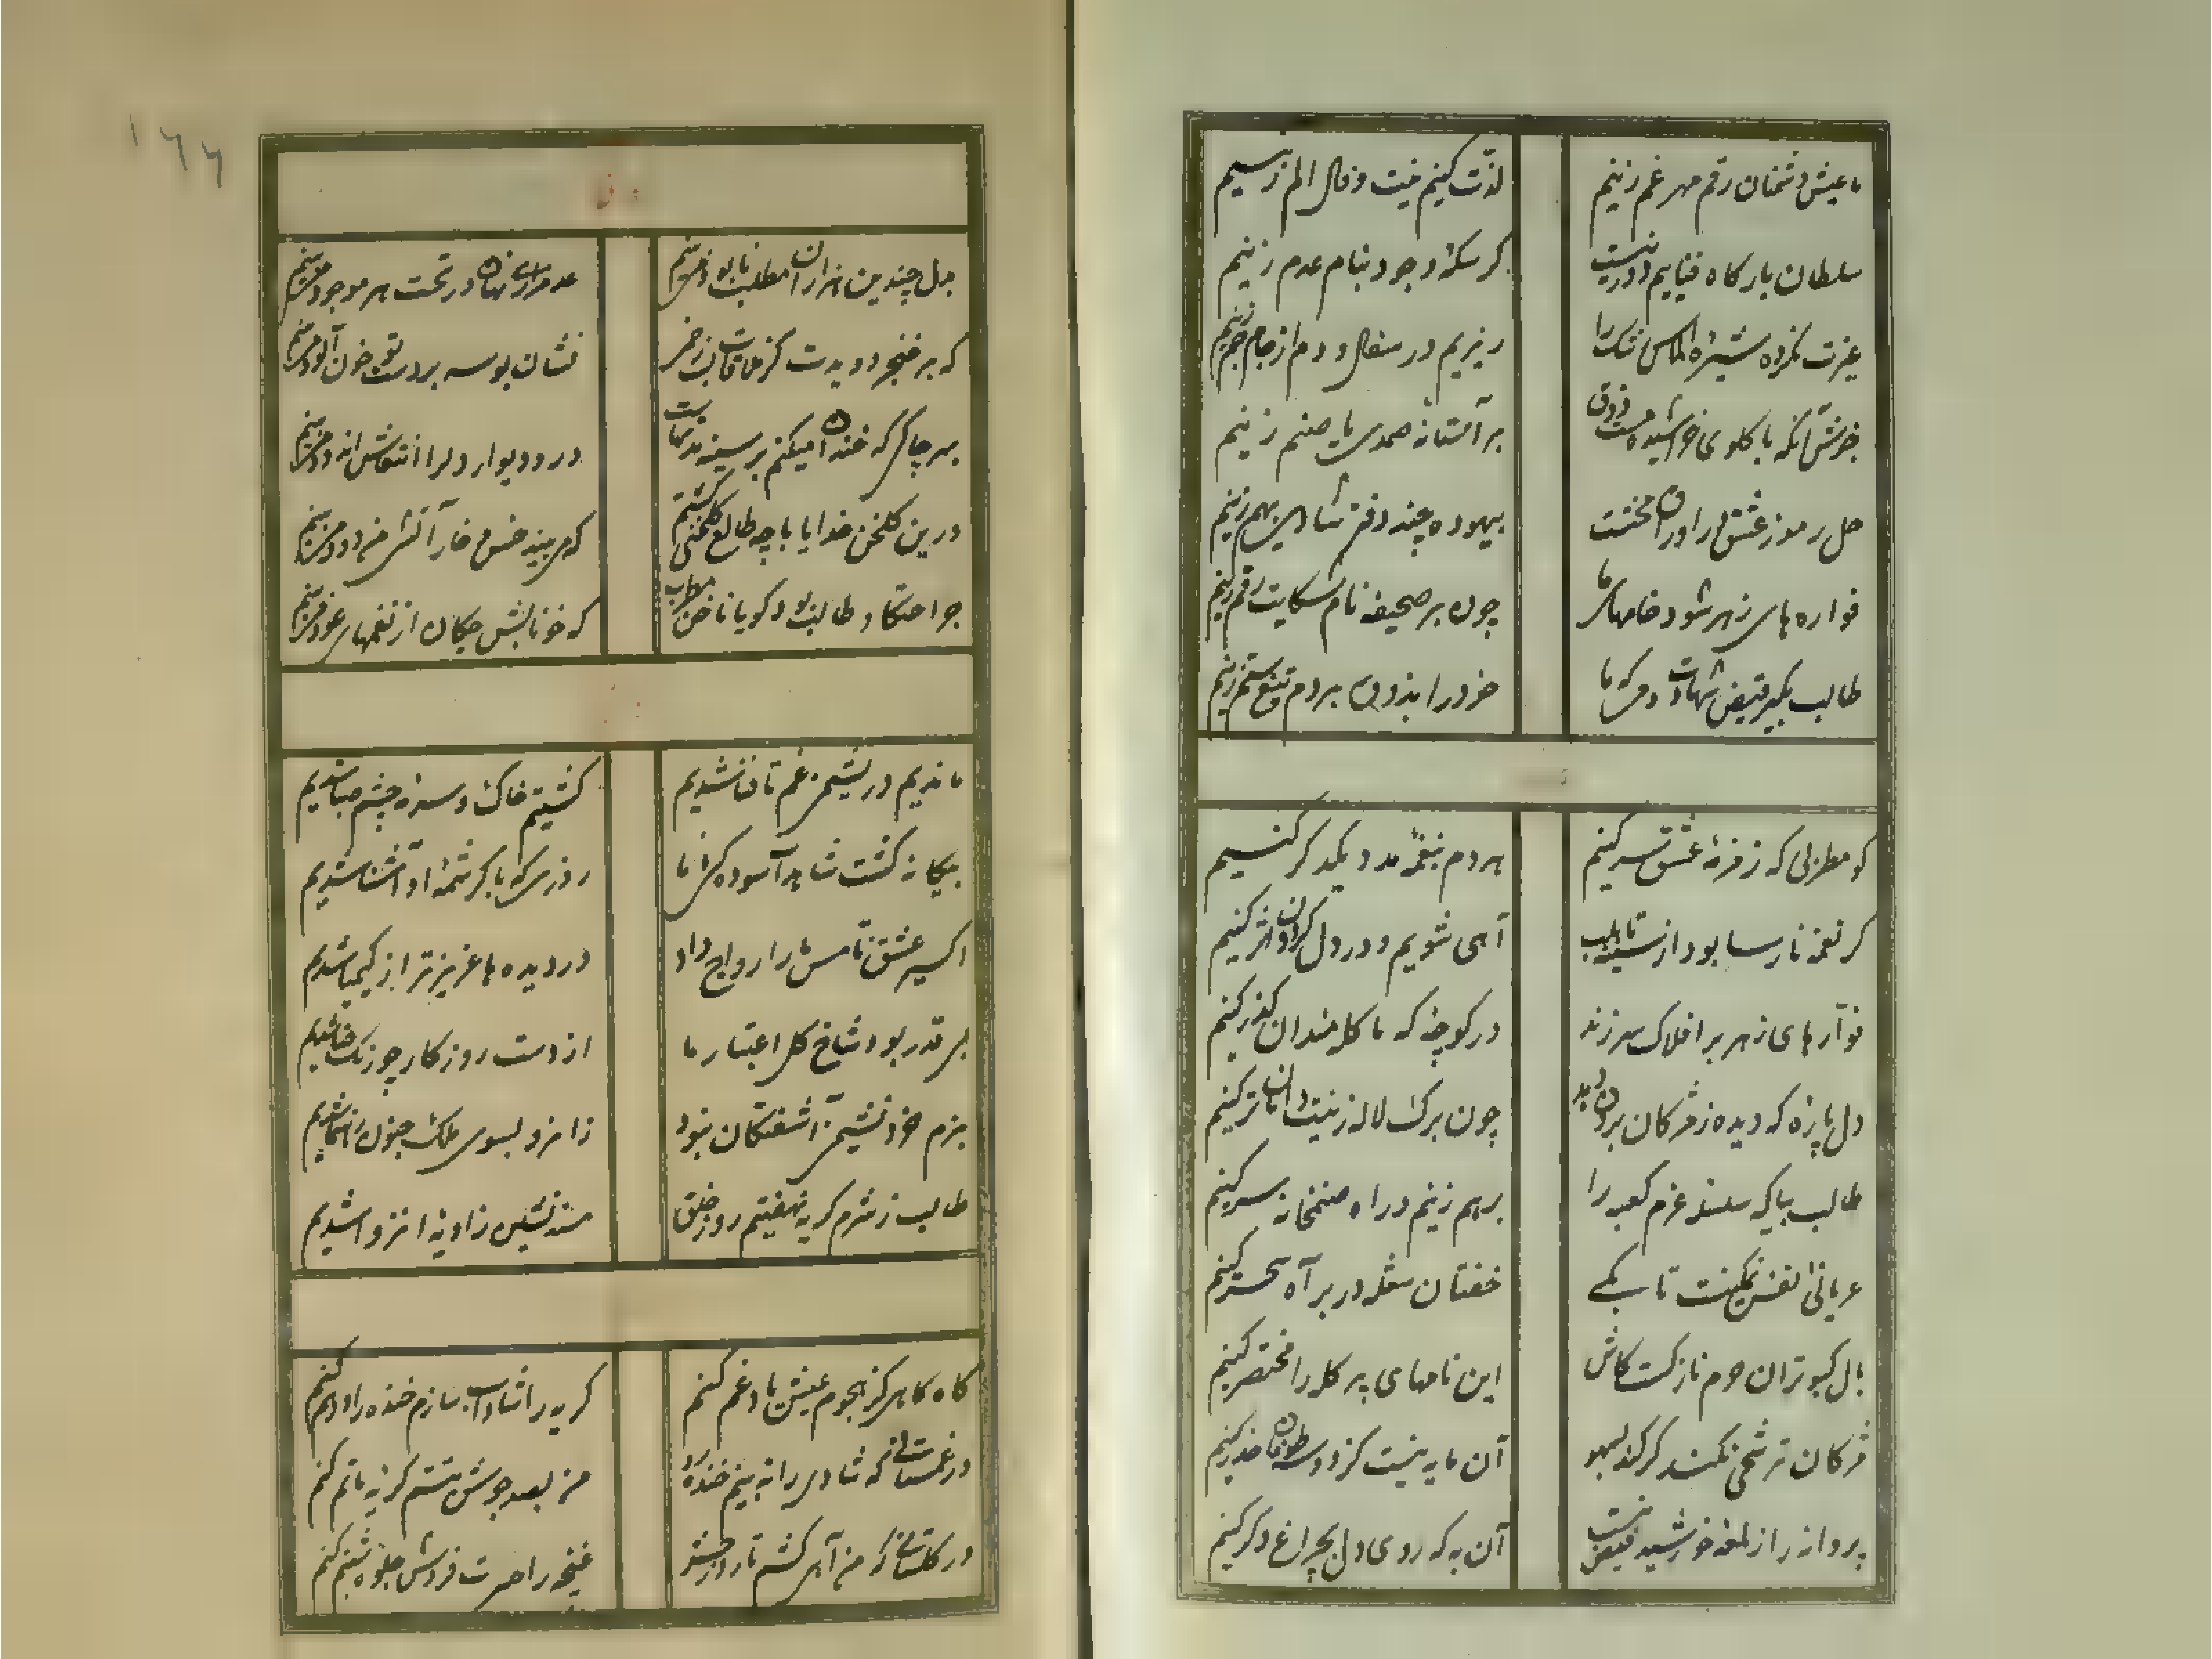 ما عیش دشمنان رقم مهر غم زنیم
لذت کنیم نیت و فال الم زنیم
سلطان بارکاه فناییم دور نیست
کر سکهٔ وجود بنام عدم زنیم
ریزیم در سفال و دم از جام جم زنیم
خوش آنکه با کلوی خراشیده ذوق
بر آستانهٔ صمدی یا صنم زنیم
حل رموز عشق
بیهوده چند دفتر شادی بهم زنیم
فواره های زهر شود خامهای ما
چون بر صحیفه نام شکایت رقم زنیم
طالب بکیر فیض شهادت
خود را بذوق بر دم تیغ ستم زنیم
کو مطربی که زمزمهٔ عشق سر کنیم
هر دم بنغمهٔ مدد یکدکر کنیم
کر نغمه نارسا بود از سینه تا بلب
آهی شویم و در دل کردون اثر کنیم
فوّارهای زهر بر افلاک سر زند
در کوچهٔ که ما کله مندان کذر کنیم
دل پارهٔ که دیده ز مژکان برون دهد
چون برک لاله زینت دامان تر کنیم
طالب بیا که سلسلهٔ عزم کعبه را
برهم زنیم و راه صنمخانه سر کنیم
عریانی نفس تا بکے
خفتان شعله در بر آه سحر کنیم
بال کبوتران حرم نازکست کاش
این نامهای پر کله را مختصر کنیم
مژکان ترشحی نکند کر کند بسهو
آن مایه نیست کز دو سه طوفان حذر کنیم
پروانه را ز لمعهٔ خورشید فیض نیست
آن به که روی دل بچراغ دکر کنیم
۱۶۶
بدل چندین هزاران مطلب نابود می بینم
عدم را
در تحت هر موجود می بینم
نشان بوسه بر دست تو خون آلود می بینم
بهر چاکی که خنده
میکنم بر سینه
در و دیوار دلرا انتعاش اندود می بینم
درین کلخن خدایا با چه طالع کلخنی کشتم
که می بیند خس و خار آتش من دود می بینم
جراحتکار طالب بود کویا ناخن مطرب
که خونابش چکان از نغمهای عود می بینم
ماندیم در نشیمن غم تا فنا شدیم
کشتیم خاک و سرمهٔ چشم صبا شدیم
بیکانه کشت شاهد آسودکی ز ما
روزی که با کرشمهٔ او آشنا شدیم
اکسیر عشق تا مس ما را رواج داد
در دیده ها عزیزتر از کیمیا شدیم
بی قدر بود شاخ کل اعتبار ما
از دست روزکار چو رنک حنا شدیم
بزم خرد نشیمن آشفتکان نبود
زانرو بسوی ملک جنون رهنما شدیم
طالب ز شرم کریه نهفتیم رو ز خلق
مسند نشین زاویهٔ انزوا شدیم
کاه کاهی کز هجوم عیش یاد غم کنم
کریه را شاداب سازم خنده را درهم کنم
در غمستانی که شادی را نه بینم خنده رو
من بصد جوش تبسم کریهٔ ماتم کنم
در کلستانی که من آهی کشم
غنچه را حسرت فروش جلوهٔ شبنم کنم